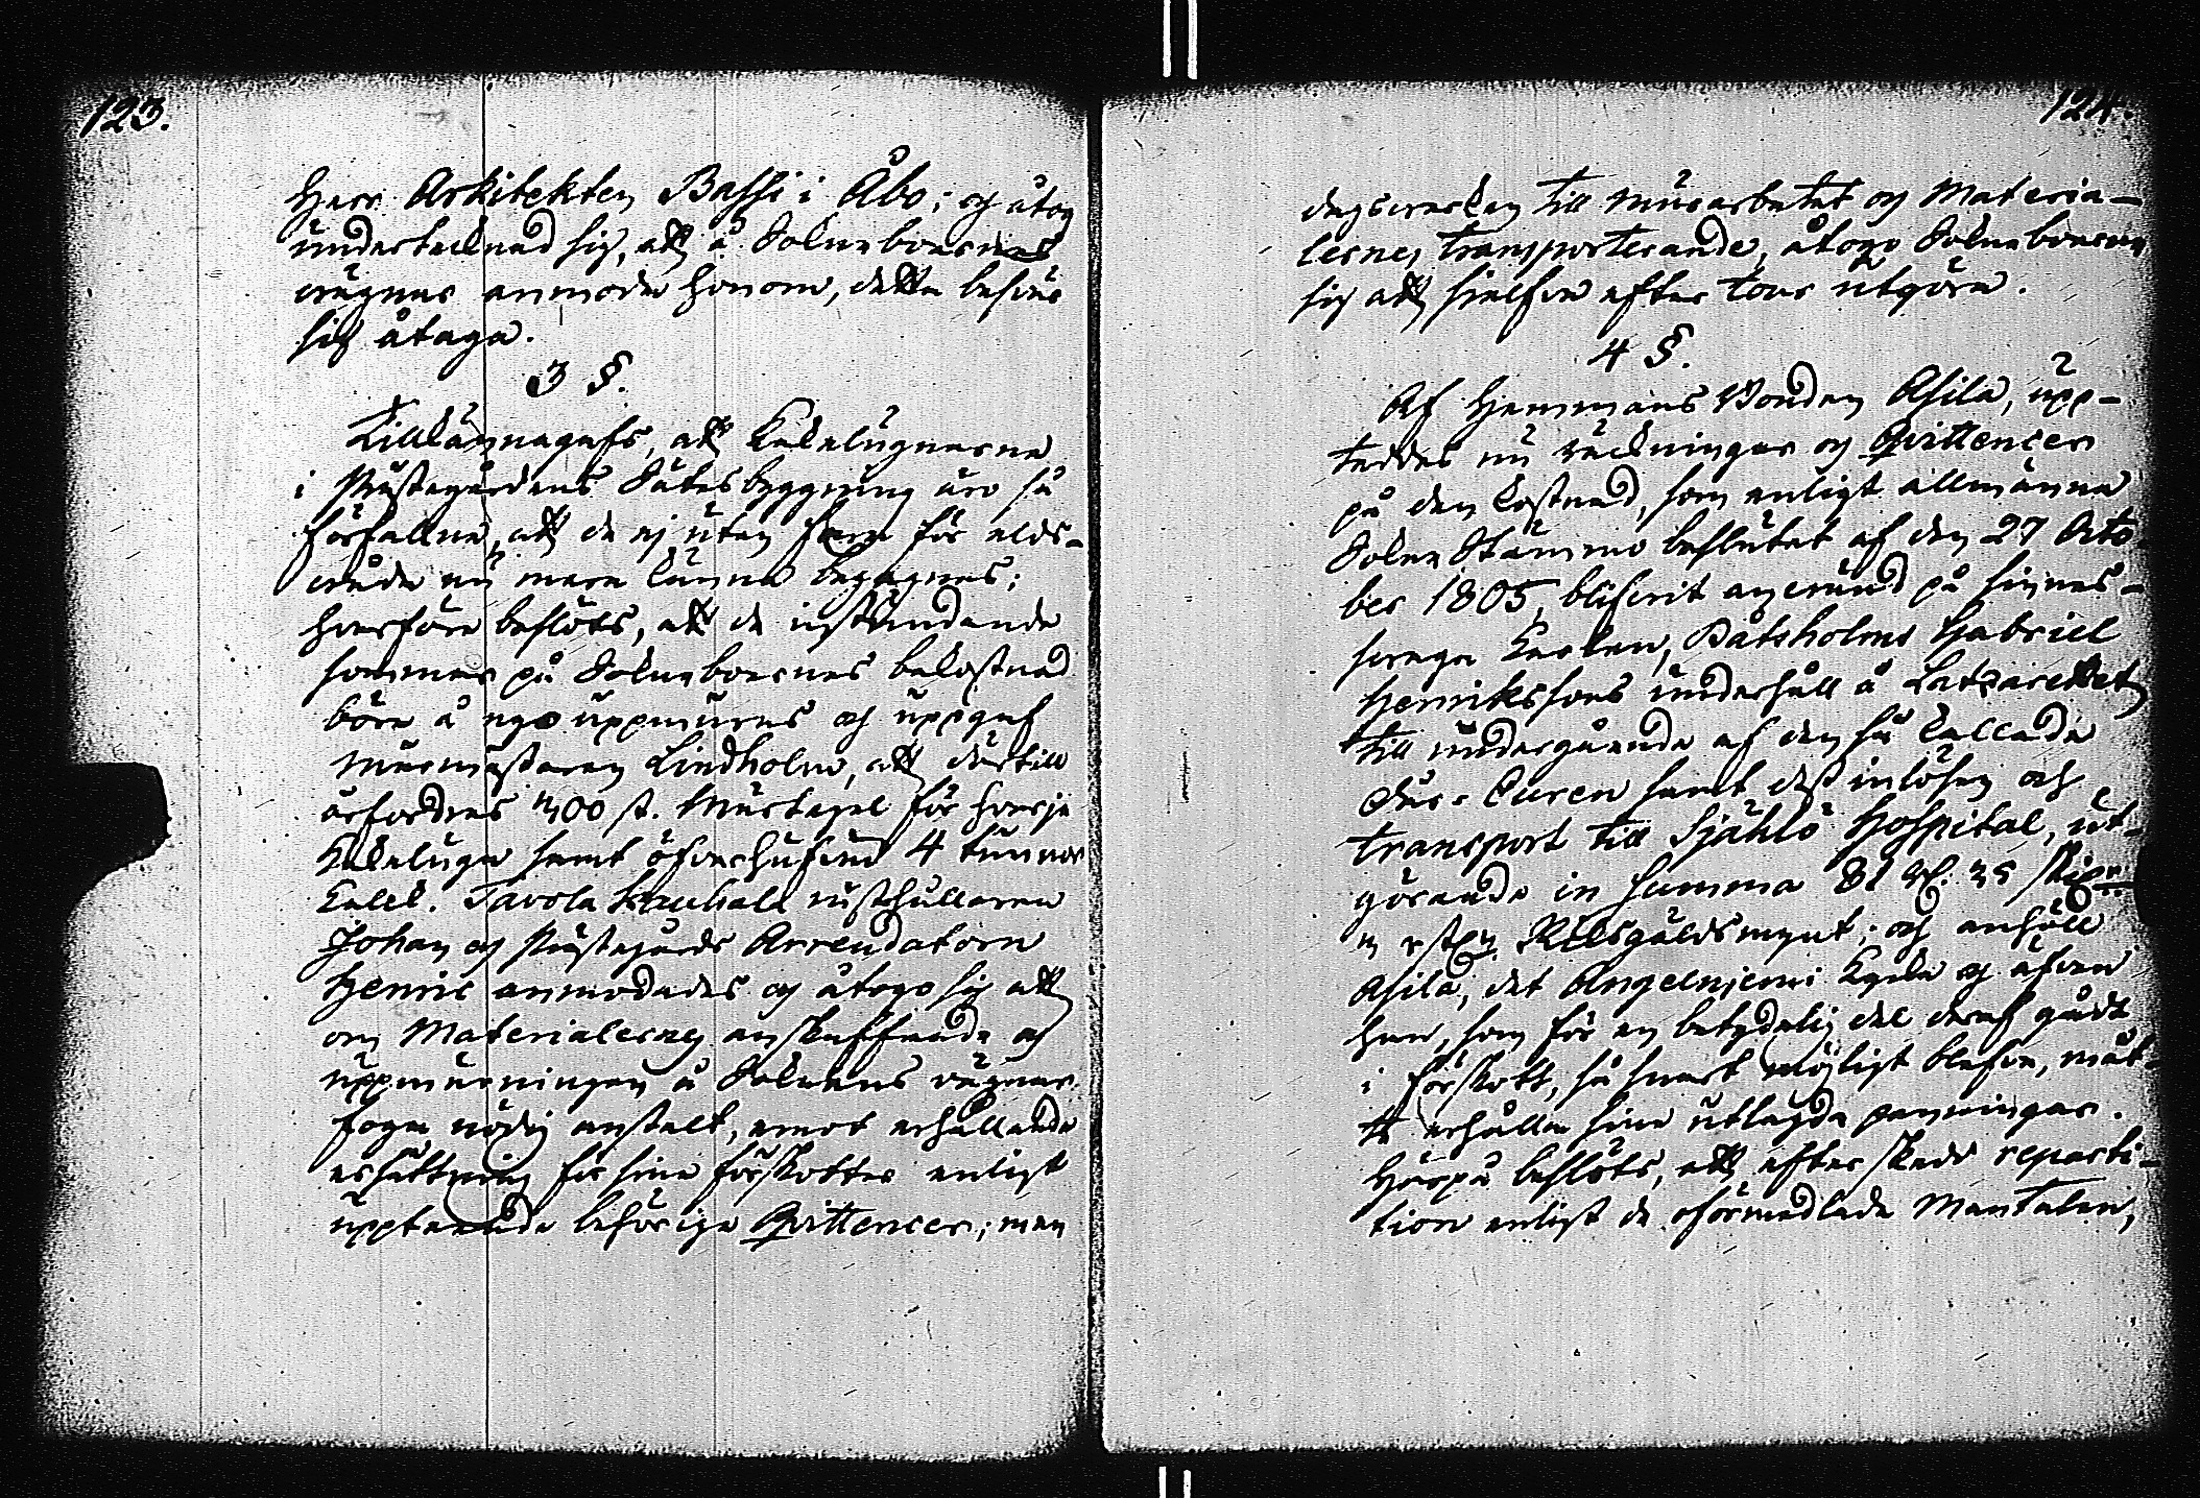 123.
Herr Arkitekten Bassi i Åbo; og åtog
undertecknad sig, att å Sokneboernes
vägnar anmoda honom, detta besvär
sig åtaga.
3 §.
Tillkännagafs, att Kakelugnarne
i Prästegårdens Sätesbyggning äro så
förfallne, att de ej utan fara för elds-
våda nu mera kunna begagnas;
hvarföre beslöts, att de instundande
sommar på Sokneboernes bekostnad
böra å nyo uppmuras och uppgaf
Murmästaren Lindholm, att dertill
erfordras 300 st. Murtegel för hvarje
Kakelugn samt öfverhufvud 4 tunnor
Kalk. Tavola Kauhald rusthållaren
Johan og Prästegårds Arrendatorn
Henric anmodades og åtogo sig att
om Materialernes anskaffande og
uppmurningen å Soknens vägnar
foga nödig anstalt, emot erhållande
ersättning för sina förskotter enligt
upptedde behöriga Qvittencer; men
124.
dagsverken till Murarbetet og Materia-
lernes transporterande, åtogo Sokneboerne
sig att sjelfva efter tour utgöra.
4 §.
Af Hemmans Bonden Asila, upp-
teddes nu räkningar og Qvittencer
på den kostnad, som enligt allmänna
Sokne Stämmo beslutet af den 27 Octo
ber 1805, blifvit använd på sinnes-
svaga Karlen, Båtsholms Gabriel
Henrikssons underhåll å Latzarettet
till undergående af den så kallade
Cur samt dess inlösen och
transport till Själö Hospital, ut-
görande in summa 81 Rd. 35 sk
3 rst. Riksgäldsmynt; och anhöll
Asila, det Angelniemi Kyrka og äfven
han, som för en betydelig del deraf gådt
i förskott, så snart möjligt blefve, måt-
te erhålla sina utlagda penningar.
Härpå beslöts, att efter skedd reparti-
tion enligt de oförmedlade Mantalen,